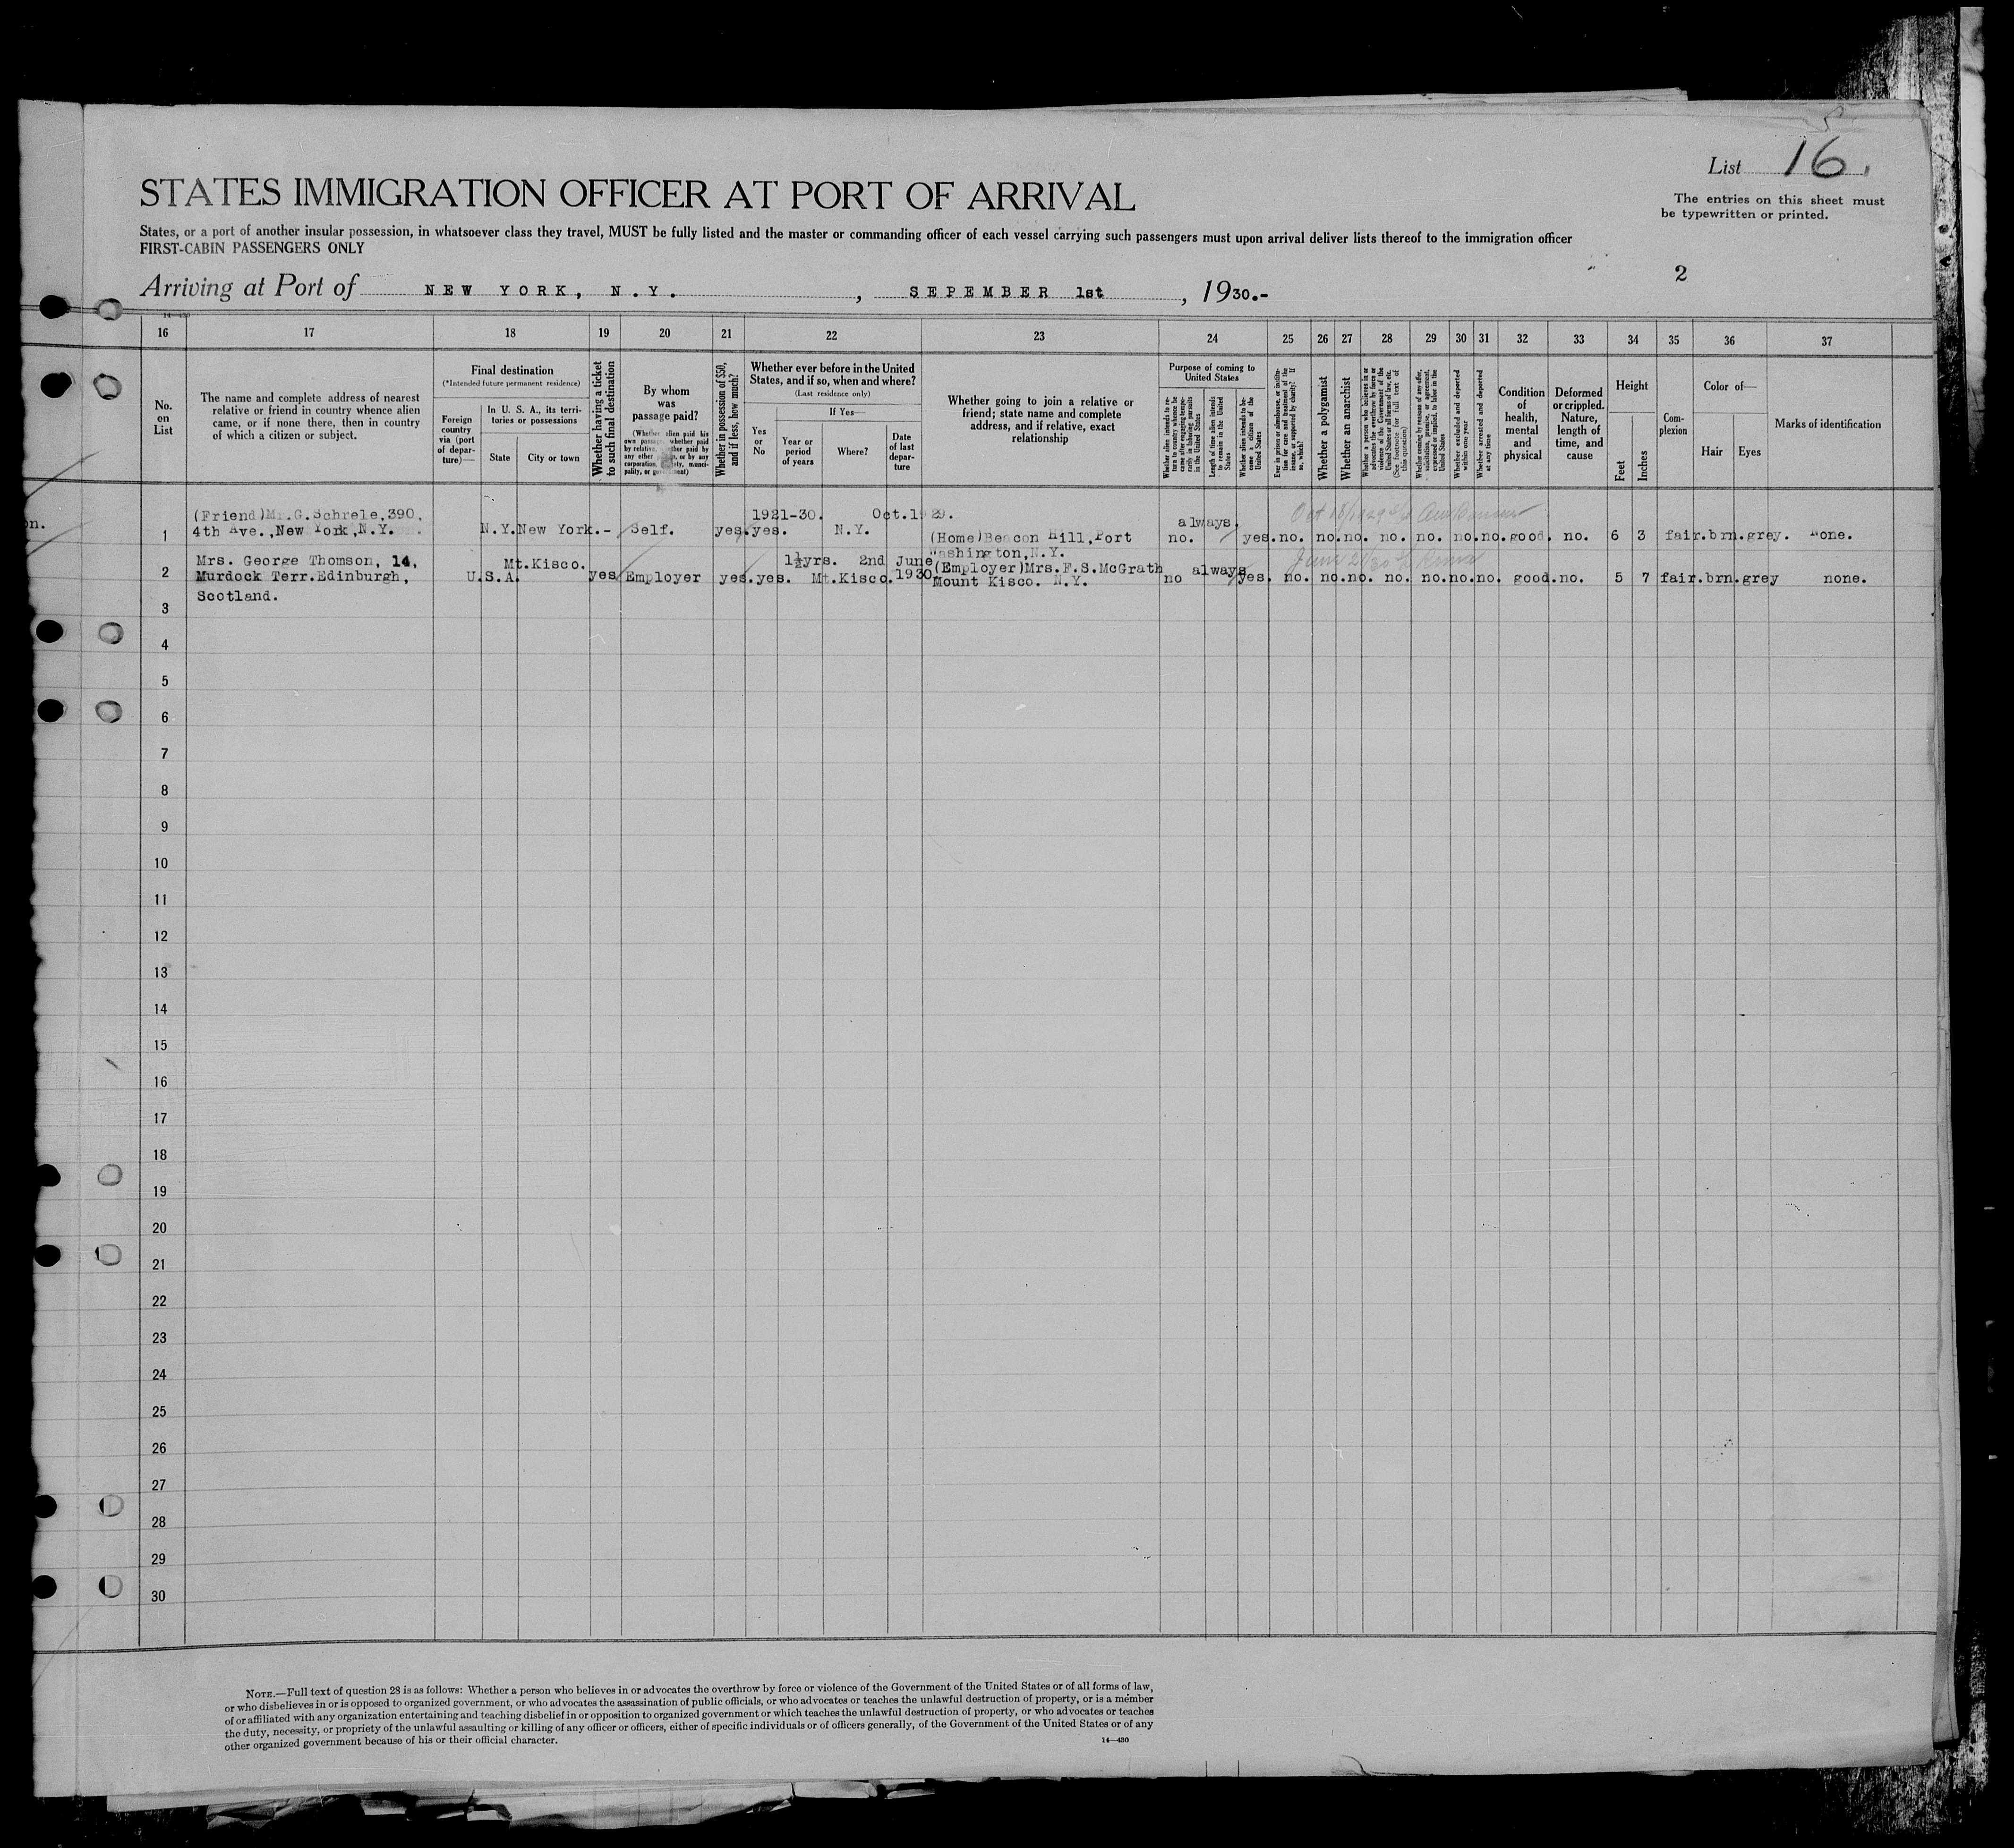 List 16.
The entries on this sheet must
be typewritten or printed.
STATES IMMIGRATION OFFICER AT PORT OF ARRIVAL
States, or a port of another insular possession, in whatsoever class they travel, MUST be fully listed and the master or commanding officer of each vessel carrying such passengers must upon arrival deliver lists thereof to the immigration officer
FIRST-CABIN PASSENGERS ONLY
2
Arriving at Port of NEW YORK, N.Y. , SEPEMBER 1st , 1930.-
14—430
16 17 18 19 20 21 22 23 24 25 26 27 28 29 30 31 32 33 34 35 36 37
No.
on
List
The name and complete address of nearest
relative or friend in country whence alien
came, or if none there, then in country
of which a citizen or subject.
Final destination
(*Intended future permanent residence)
Foreign
country
via (port
of depar-
ture)—
In U. S. A., its terri-
tories or possessions
State
City or town
Whether having a ticket
to such final destination
By whom
was
passage paid?
(Whether alien paid his
own passage, whether paid
by relative, whether paid by
any other person, or by any
corporation, society, munici-
pality, or government)
Whether in possession of $50,
and if less, how much?
Whether ever before in the United
States, and if so, when and where?
(Last residence only)
Yes
or
No
If Yes—
Year or
period
of years
Where?
Date
of last
depar-
ture
Whether going to join a relative or
friend; state name and complete
address, and if relative, exact
relationship
Purpose of coming to
United States
Whether alien intends to re-
turn to country whence he
came after engaging tempo-
rarily in laboring pursuits
in the United States
Length of time alien intends
to remain in the United
States
Whether alien intends to be-
come a citizen of the
United States
Ever in prison or almshouse, or institu-
tion for care and treatment of the
insane, or supported by charity? If
so, which?
Whether a polygamist
Whether an anarchist
Whether a person who believes in or
advocates the overthrow by force or
violence of the Government of the
United States or all forms of law, etc.
(See footnote for full text of
this question)
Whether coming by reason of any offer,
solicitation, promise, or agreement,
expressed or implied, to labor in the
United States
Whether excluded and deported
within one year
Whether arrested and deported
at any time
Condition
of
health,
mental
and
physical
Deformed
or crippled.
Nature,
length of
time, and
cause
Height
Feet
Inches
Com-
plexion
Color of—
Hair
Eyes
Marks of identification
on.
(Friend)Mr.G.Schrele,390, 1921-30. Oct.1929.
1 4th Ave.,New York,N.Y. N.Y.New York.- Self. yes.yes. N.Y. (Home)Beacon Hill,Port no. always. yes.no. no.no. no. no. no.no.good. no. 6 3 fair.brn.grey. None.
Washington,N.Y.
Mrs. George Thomson, 14, Mt.Kisco. 1½yrs. 2nd June
2 Murdock Terr.Edinburgh, U.S.A. yes Employer yes.yes. Mt.Kisco.1930 (Employer)Mrs.F.S.McGrath no always yes. no. no.no. no. no.no.no. good.no. 5 7 fair.brn.grey none.
Mount Kisco. N.Y.
Scotland.
3
4
5
6
7
8
9
10
11
12
13
14
15
16
17
18
19
20
21
22
23
24
25
26
27
28
29
30
NOTE.—Full text of question 28 is as follows: Whether a person who believes in or advocates the overthrow by force or violence of the Government of the United States or of all forms of law,
or who disbelieves in or is opposed to organized government, or who advocates the assassination of public officials, or who advocates or teaches the unlawful destruction of property, or is a member
of or affiliated with any organization entertaining and teaching disbelief in or opposition to organized government or which teaches the unlawful destruction of property, or who advocates or teaches
the duty, necessity, or propriety of the unlawful assaulting or killing of any officer or officers, either of specific individuals or of officers generally, of the Government of the United States or of any
other organized government because of his or their official character.
14—430